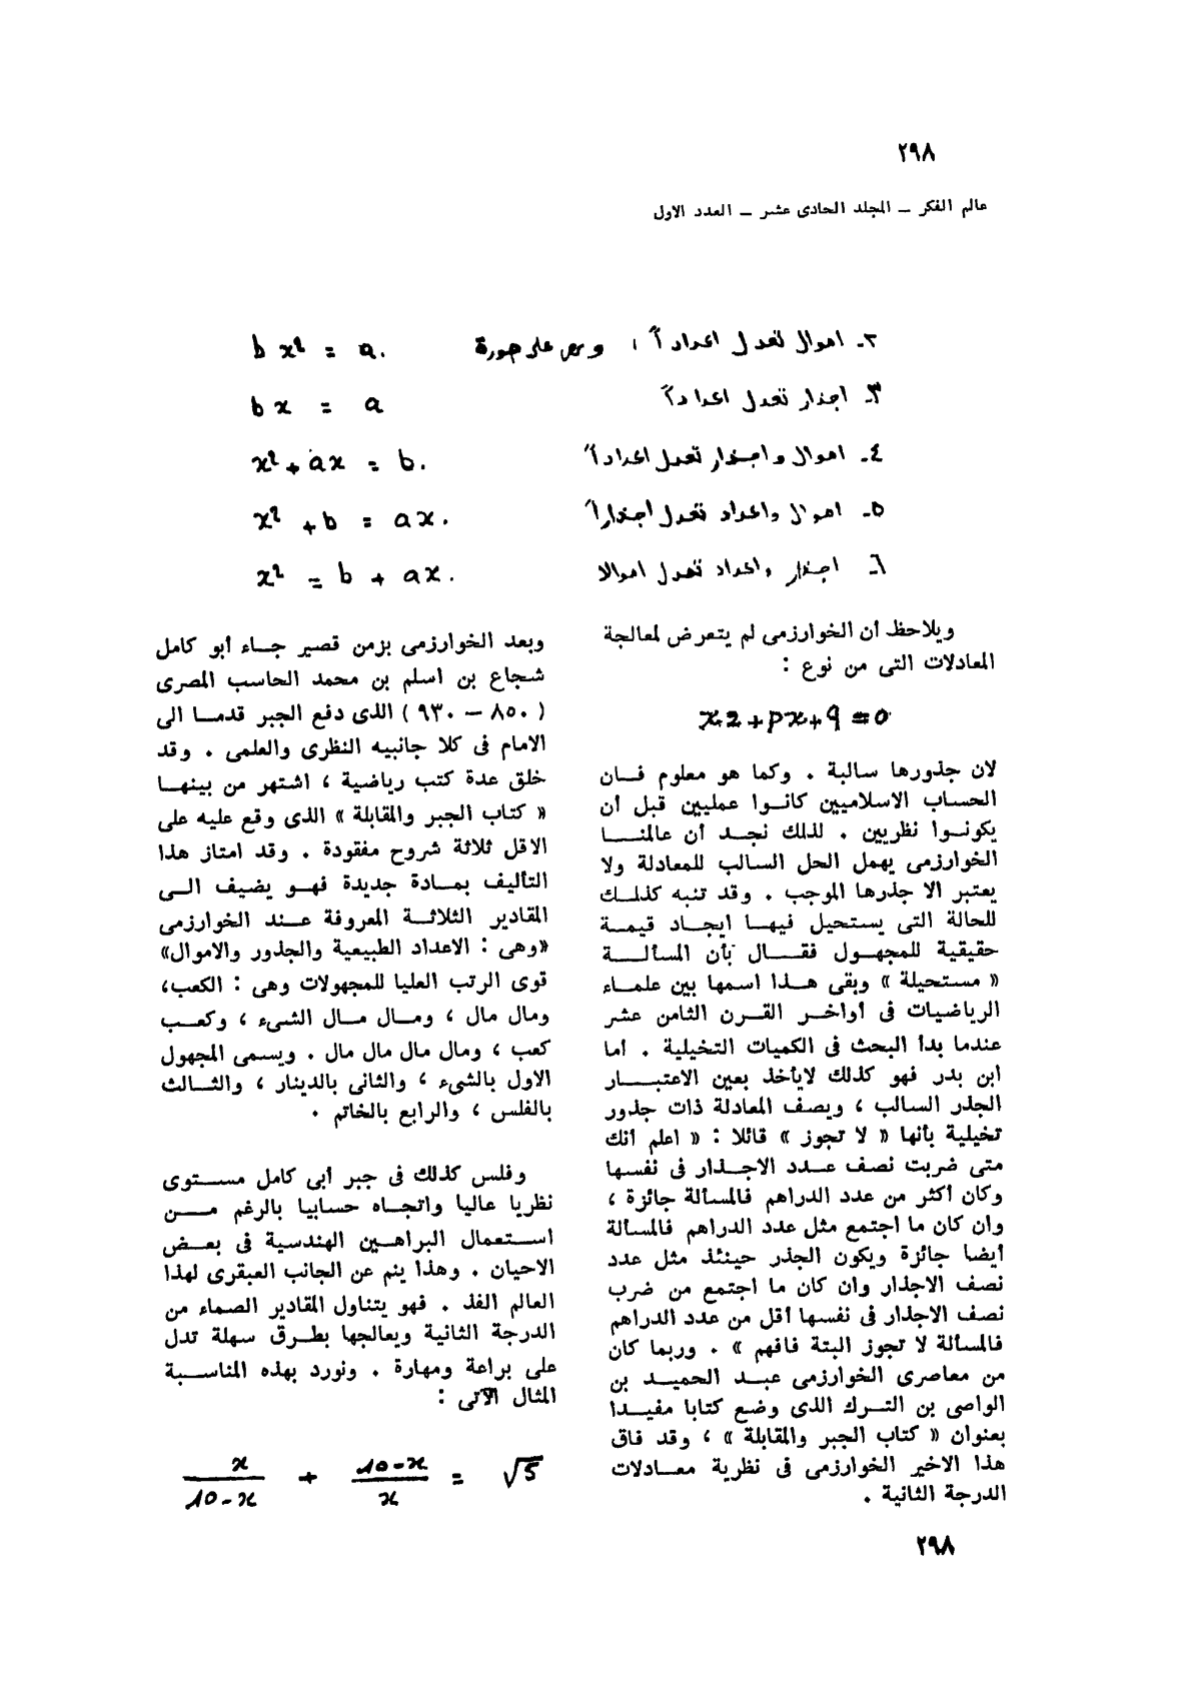 ٢٩٨
عالم الفكر ــ المجلد الحادى عشر ــ العدد الاول
٢ـ اموال تعدل اعداداً ، وهى على صورة b x² = a.
٣ـ اجذار تعدل اعداداً bx = a
٤ـ اموال واجذار تعدل اعداداً x² + ax = b.
٥ـ اموال واعداد تعدل اجذاراً x² + b = ax.
٦ـ اجذار واعداد تعدل اموالا x² = b + ax.
ويلاحظ أن الخوارزمى لم يتعرض لمعالجة
المعادلات التى من نوع :
x2+px+q=0
لان جذورها سالبة . وكما هو معلوم فان
الحساب الاسلاميين كانوا عمليين قبل أن
يكونوا نظريين . لذلك نجد أن عالمنا
الخوارزمى يهمل الحل السالب للمعادلة ولا
يعتبر الا جذرها الموجب . وقد تنبه كذلك
للحالة التى يستحيل فيها ايجاد قيمة
حقيقية للمجهول فقال بأن المسألة
« مستحيلة » وبقى هذا اسمها بين علماء
الرياضيات فى أواخر القرن الثامن عشر
عندما بدأ البحث فى الكميات التخيلية . أما
ابن بدر فهو كذلك لايأخذ بعين الاعتبار
الجذر السالب ، ويصف المعادلة ذات جذور
تخيلية بأنها « لا تجوز » قائلا : « اعلم أنك
متى ضربت نصف عدد الاجذار فى نفسها
وكان أكثر من عدد الدراهم فالمسالة جائزة ،
وان كان ما اجتمع مثل عدد الدراهم فالمسالة
أيضا جائزة ويكون الجذر حينئذ مثل عدد
نصف الاجذار وان كان ما اجتمع من ضرب
نصف الاجذار فى نفسها أقل من عدد الدراهم
فالمسالة لا تجوز البتة فافهم » . وربما كان
من معاصرى الخوارزمى عبد الحميد بن
الواصى بن الترك الذى وضع كتابا مفيدا
بعنوان « كتاب الجبر والمقابلة » ، وقد فاق
هذا الاخير الخوارزمى فى نظرية معادلات
الدرجة الثانية .
وبعد الخوارزمى بزمن قصير جاء أبو كامل
شجاع بن اسلم بن محمد الحاسب المصرى
( ٨٥٠ ــ ٩٣٠ ) الذى دفع الجبر قدما الى
الامام فى كلا جانبيه النظرى والعلمى . وقد
خلق عدة كتب رياضية ، اشتهر من بينها
« كتاب الجبر والمقابلة » الذى وقع عليه على
الاقل ثلاثة شروح مفقودة . وقد امتاز هذا
التأليف بمادة جديدة فهو يضيف الى
المقادير الثلاثة المعروفة عند الخوارزمى
«وهى : الاعداد الطبيعية والجذور والاموال»
قوى الرتب العليا للمجهولات وهى : الكعب،
ومال مال ، ومال مال الشىء ، وكعب
كعب ، ومال مال مال مال . ويسمى المجهول
الاول بالشىء ، والثانى بالدينار ، والثالث
بالفلس ، والرابع بالخاتم .
وفلس كذلك فى جبر أبى كامل مستوى
نظريا عاليا واتجاه حسابيا بالرغم من
استعمال البراهين الهندسية فى بعض
الاحيان . وهذا ينم عن الجانب العبقرى لهذا
العالم الفذ . فهو يتناول المقادير الصماء من
الدرجة الثانية ويعالجها بطرق سهلة تدل
على براعة ومهارة . ونورد بهذه المناسبة
المثال الآتى :
x/(10-x) + (10-x)/x = √5
٢٩٨